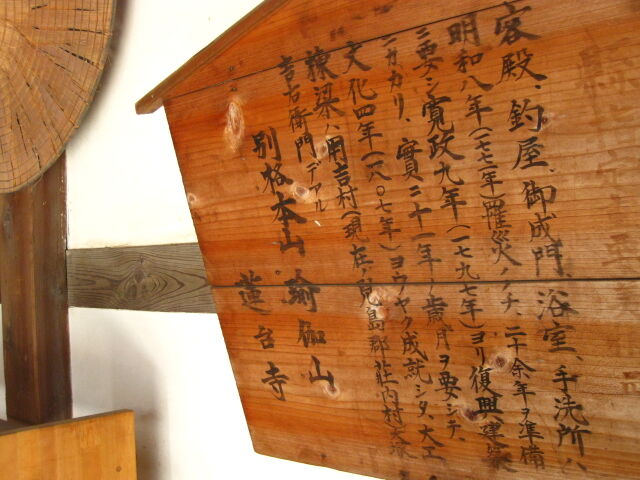 客殿、釣屋、御成門、浴室、手洗所ハ
明和八年(一七七一年)罹災ノノチ、二十余年ヲ準備
ニ要シ寛政九年(一七九七年)ヨリ復興建築
ニカカリ、實ニ十一年ノ歳月ヲ要シテ、
文化四年(一八〇七年)ヨウヤク成就シタ、大工
棟梁ハ用吉村(現在ノ児島郡荘内村大
吉右衛門デアル
別格本山 瑜伽山
蓮台寺